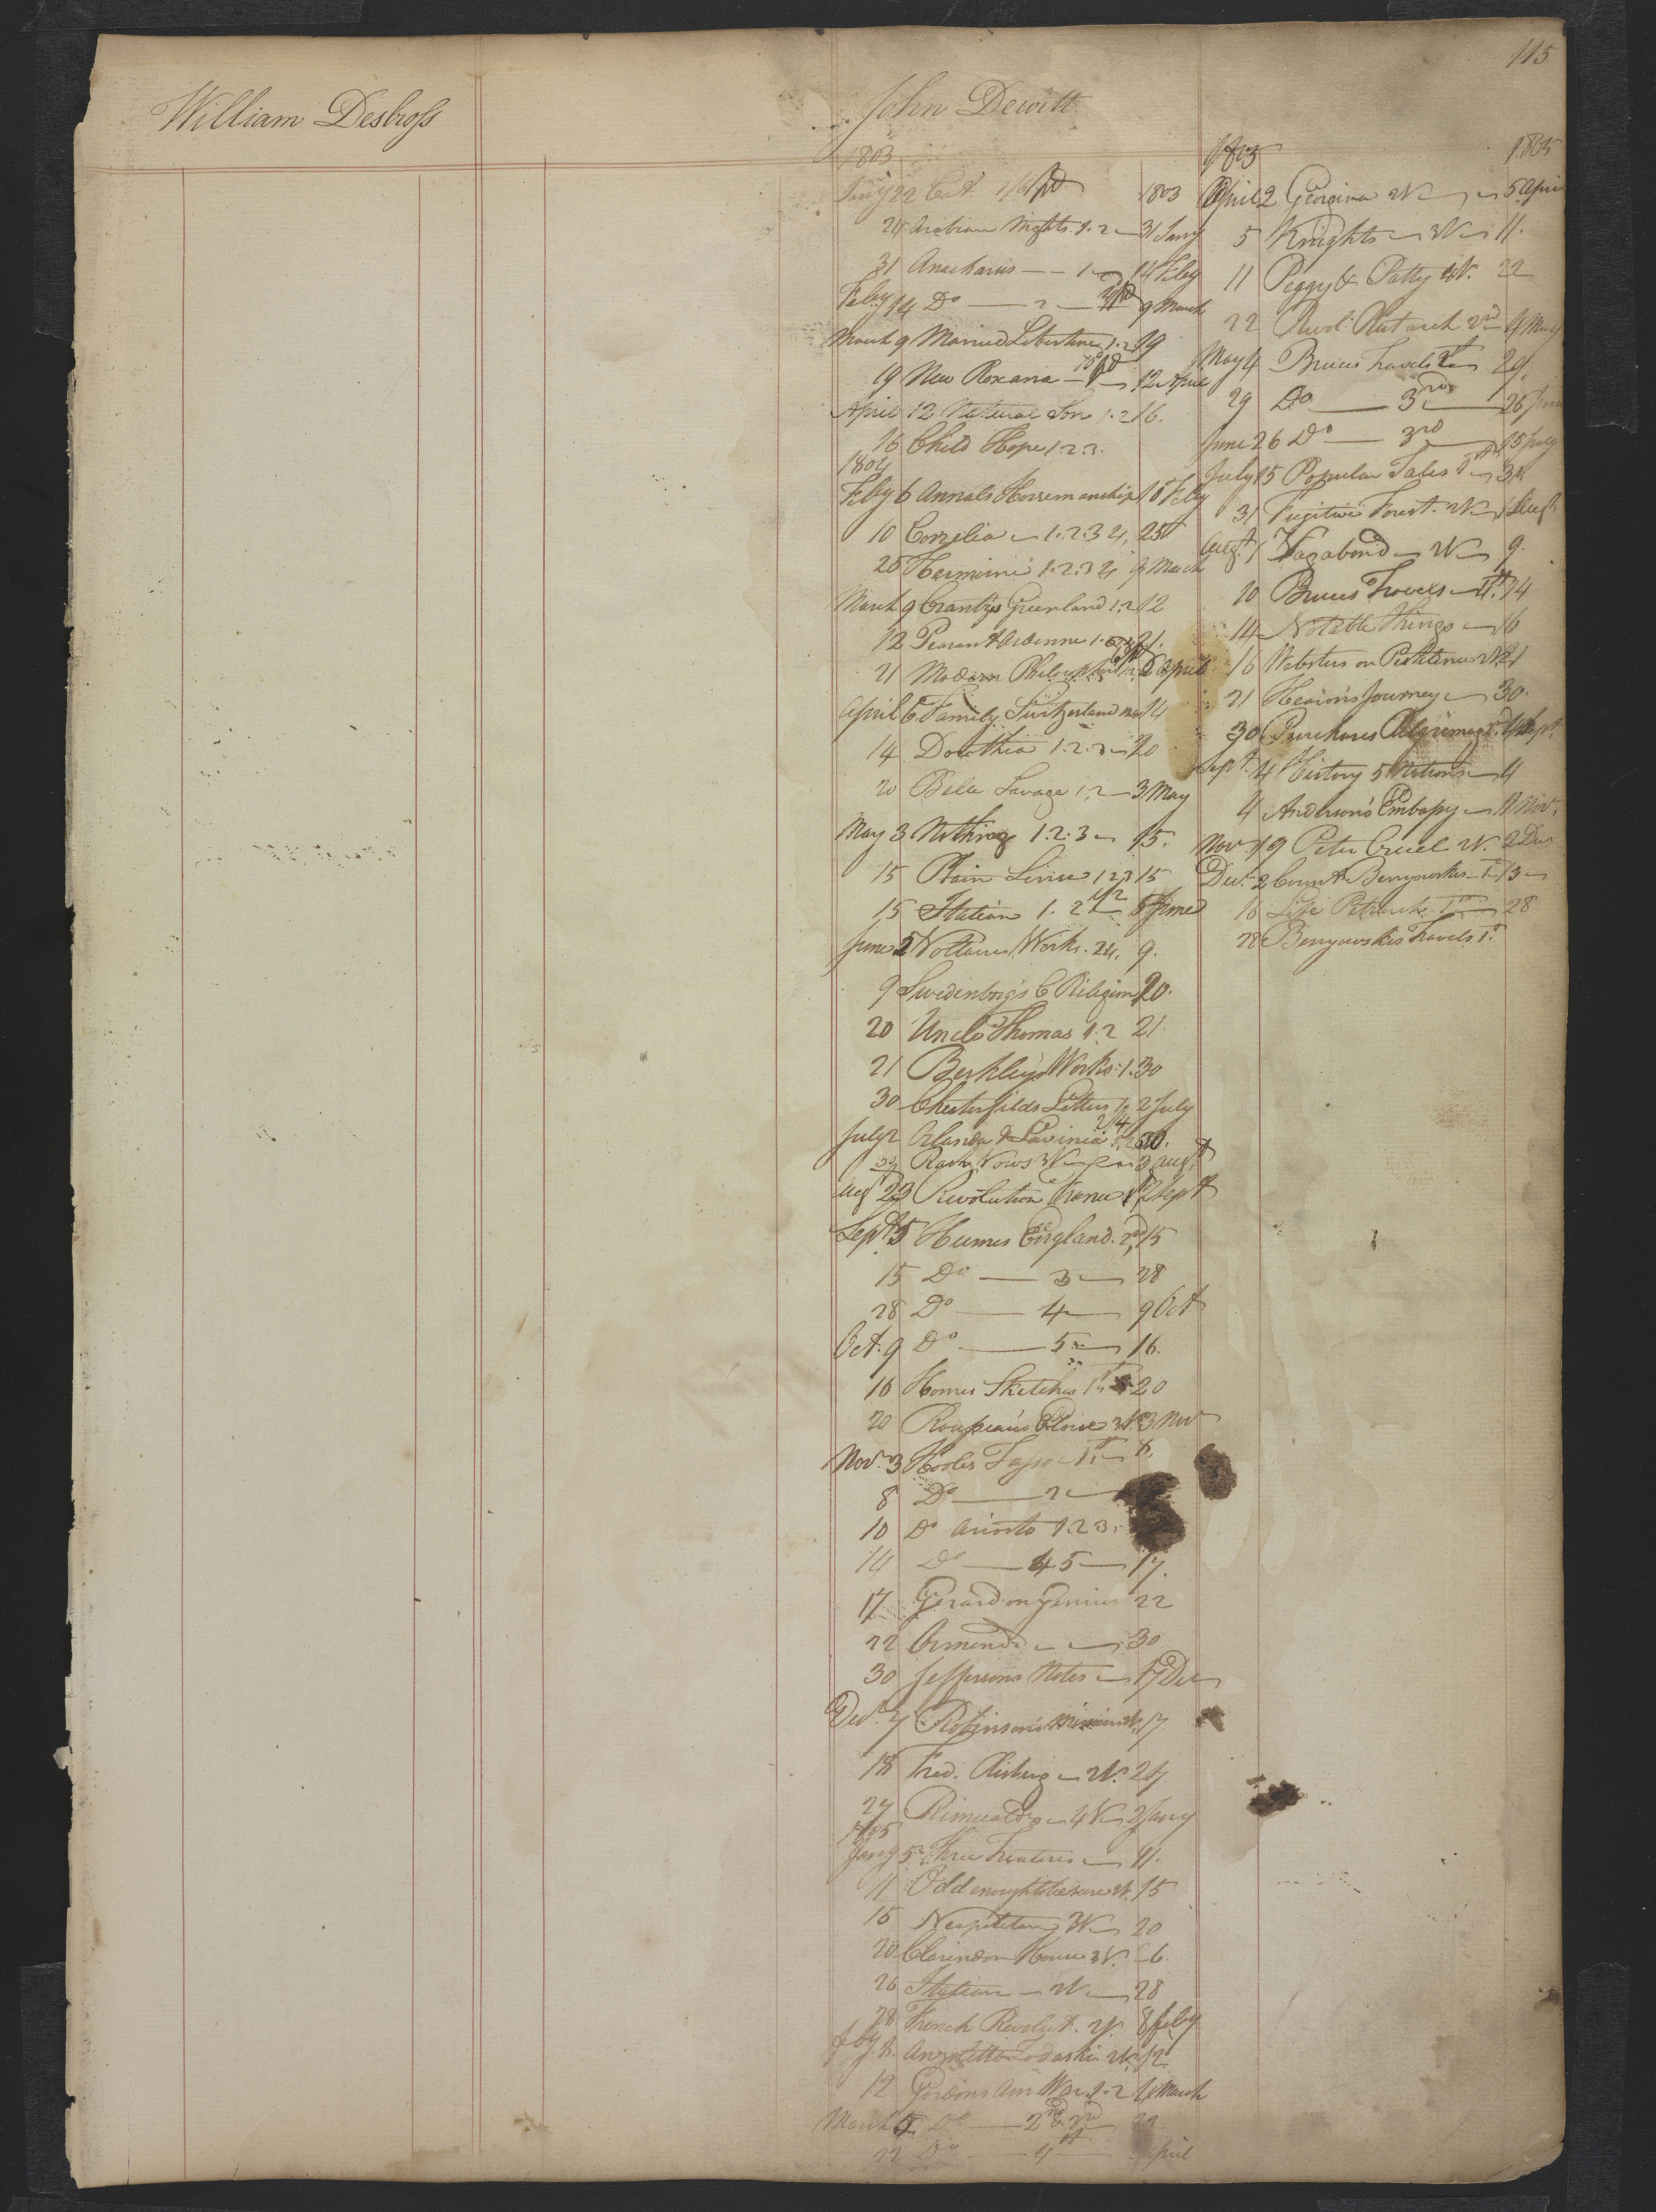 115
William Desbross
John Dewitt
1803
Jany 22 Cat. 1/6 pd 1803
24 Arabian Nights. 1. 2 31 Jany
31 Anacharsis 1 14 Feby
Feby 14 Do 2 9 March
March 9 Married Libertine 1. 2 19
19 New Roxana 12 April
April 12 Natural Son 1. 2 16.
16 Child Hope 1. 2. 3.
1804
Feby 6 Annals Horsemanship 10 Feby
10 Corzelia 1. 2. 3 4, 25
25 Hermione 1. 2. 3 4 9 March
March 9 Crantz's Greenland 1. 2 12
12 Peasant Ardenne 21.
21 Modern Philosophers 6 April
April 6 Family Switzerland 14
14 Dorothea 1. 2. 3 20
20 Belle Savage 1. 2 3 May
May 3 Nothing 1. 2. 3 15.
15 Plain Sense 1 2 3 15
15 Italian 1. 2 5 June
June 5 Voltaires Works. 24. 9.
9 Swedenborg's C Religion 20.
20 Uncle Thomas 1. 2 21.
21 Berkley's Works. 1. 30
30 Chesterfields Letters 2 July
July 2 Orlando & Lavinia 30.
30 Rash Vows 3V 3 Augt
Aug 23 Revolution France 2 Sept
Sept 5 Humes England. 2nd 15
15 Do 3 28
28 Do 4 9 Oct
Oct. 9 Do 5 16.
16 Homes Sketches 1st 20
20 Rousseau's Eloise 3V. 3 Nov
Nov. 3 Hooles Tasso 1st 8.
8 Do 2
10 Do Ariosto 1. 2 3.
14 Do 4 5 17.
17 Gerard on Genius 22
22 Ormond 30
30 Jeffersons Notes 7 Dec
Decr. 7 Robinson's 17.
18 Fred. Risberg 2V. 27
27 Rimualdo 4V 2 Jany
1805
Jany 5 Three Treatises 11.
11 Odd enough to be sure 2V. 15
15 Neapolitan 3V 20
20 Clarendon House 3V. 26.
26 Italian 2V 28
28 French Revolut. 2V. 8 Feby
Feby 8 2V. 12
12 Gordons Am War. 1. 2 March
March Do 2 & 3rd 22
22 Do 4th April
1805 1805
April 2 Georgina 2V 5 April
5 Knights 3V 11.
11 Peggy & Patty 4V. 22
22 Revol. Plutarch 2nd 4 May
May 4 Bruces Travels 29.
29 Do 3rd 26 June
June 26 Do 3rd 15 July
July 15 Popular Tales 1st 31.
31 Fugitive Forest. 2V 1 Augt
Augt. 1 Vagabond 2V 9.
10 Bruces Travels 4th. 14
14 Notable Things 16
16 Websters on Pestilence 2V. 21
21 Hearons Journey 30.
30 Purchases Pilgrimage 4 Sept.
Sept. 4 History 5 Nations 4
4 Anderson's Embassy 11 Nov.
Nov 19 Peter Cruel 2V. 2 Dec
Decr. 2 Count Benyowskie 1st 13
16 Life Petrarch. 1st 28
28 Benyowskies Travels 1st